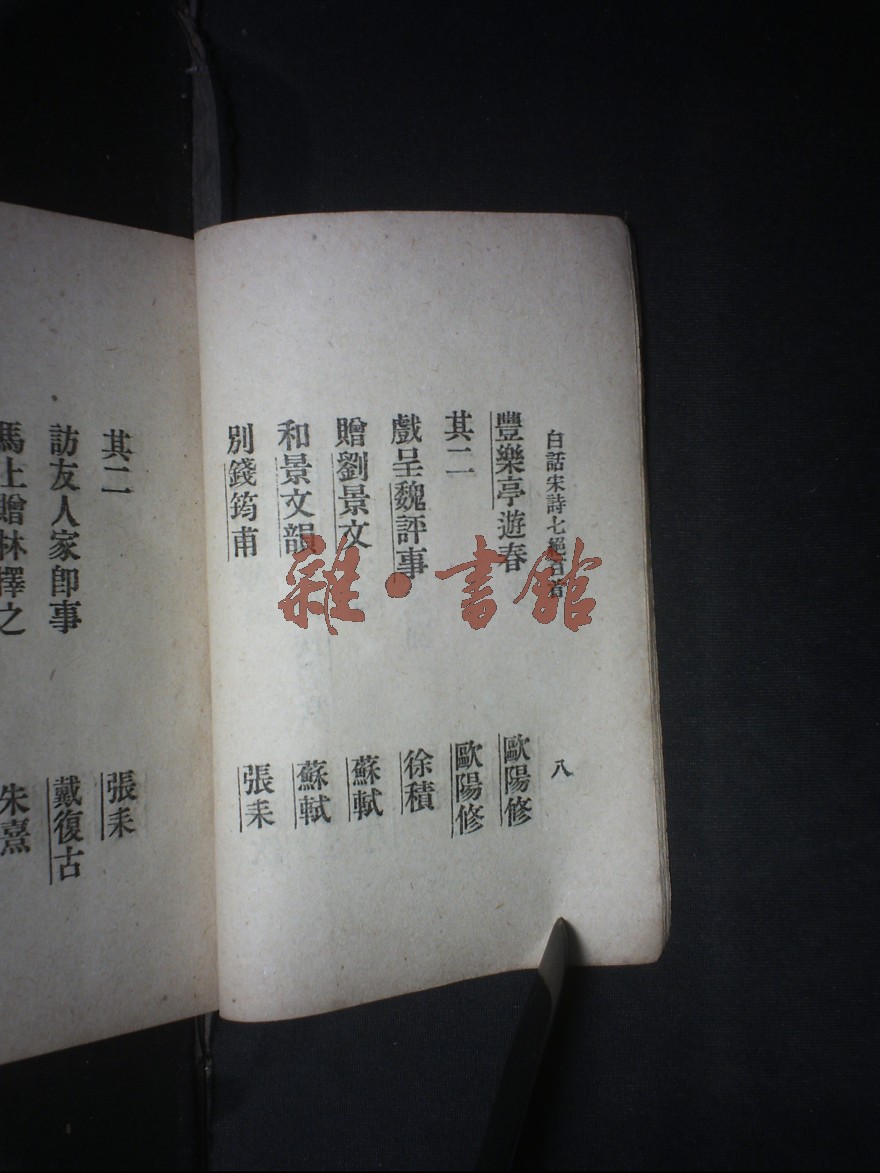 白話宋詩七絕百首 八
豐樂亭遊春 歐陽修
其二 歐陽修
戲呈魏評事 徐積
贈劉景文 蘇軾
和景文韻 蘇軾
別錢筠甫 張耒
其二 張耒
訪友人家卽事 戴復古
馬上贈林擇之 朱熹
雜·書館